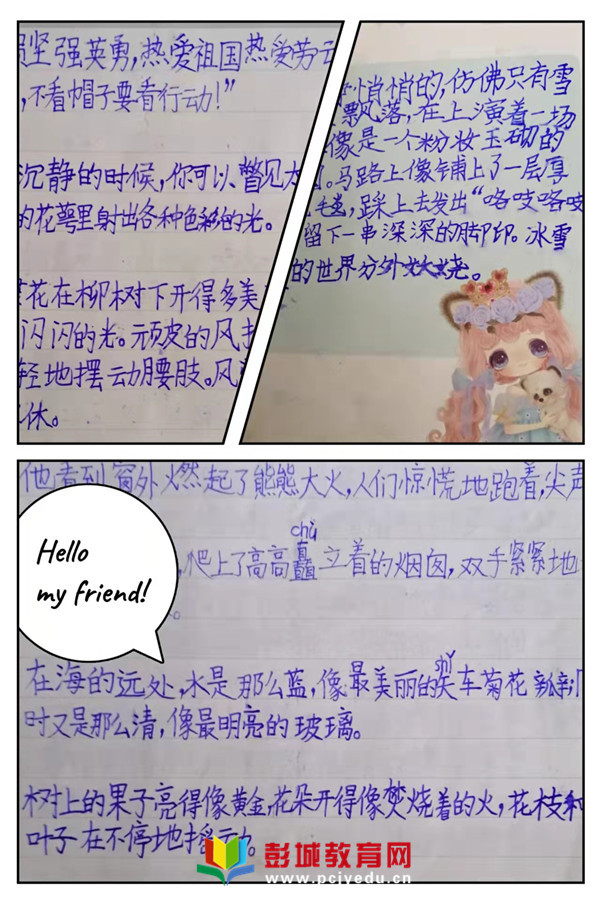 坚强英勇，热爱祖国热爱劳云
，不看帽子要看行动！”
沉静的时候，你可以瞥见
的花萼里射出各种色彩的光。
花在柳树下开得多美
闪闪的光。顽皮的风
轻地摆动腰肢。风
休。
悄悄的，仿佛只有雪
飘落，在上演着一场
像是一个粉妆玉砌的
。马路上像铺上了一层厚
毯，踩上去发出“咯吱咯吱
留下一串深深的脚印。冰雪
的世界分外妖娆。
他看到窗外燃起了熊熊大火，人们惊慌地跑着，尖声
Hello
my friend!
chù
爬上了高高矗立着的烟囱，双手紧紧地
shǐ
在海的远处，水是那么蓝，像最美丽的矢车菊花
时又是那么清，像最明亮的玻璃。
树上的果子亮得像黄金，花朵开得像焚烧着的火，花枝和
叶子在不停地摇动。
彭城教育网
www.pcjyedu.cn